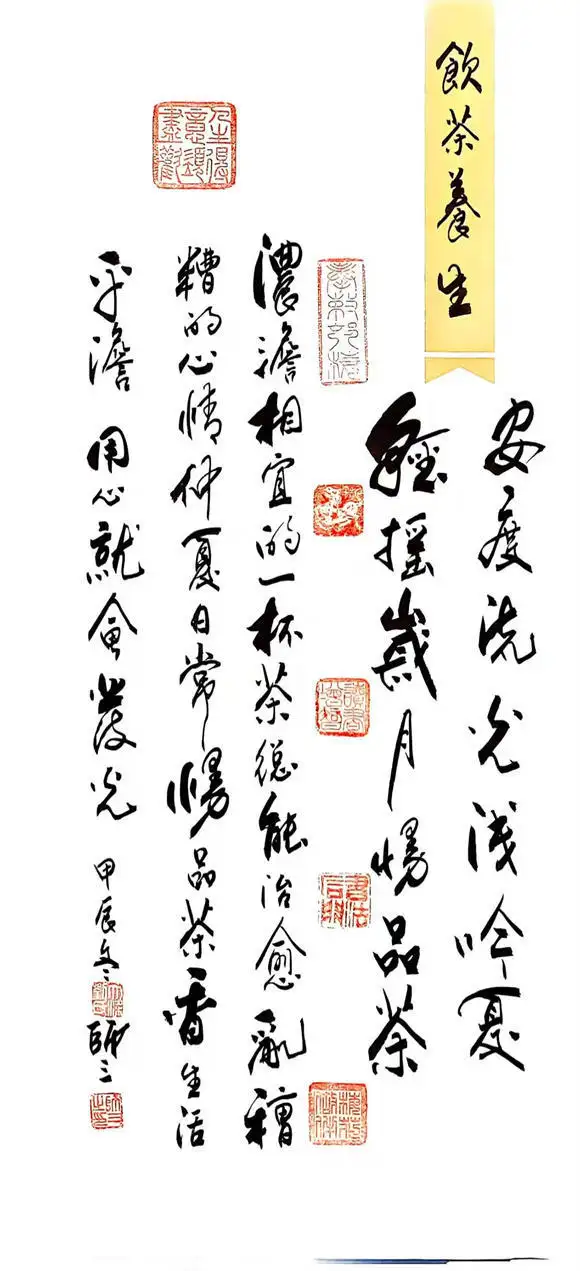 飲茶養生
安度流光浅吟夏
輕搖歲月慢品茶
濃澹相宜的一杯茶總能治愈亂糟
糟的心情仲夏日常慢品茶香生活
平澹 用心就會發光 甲辰冬 師三
人生得意須盡歡